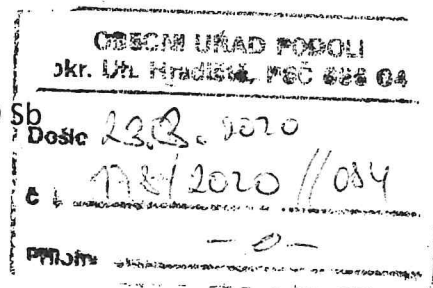 OBECNÍ ÚŘAD PODOLÍ
okr. Uh. Hradiště, PSČ 686 04
Sb
Došlo 23.3.2020
č.j. 178/2020//084
Přílohy -0-